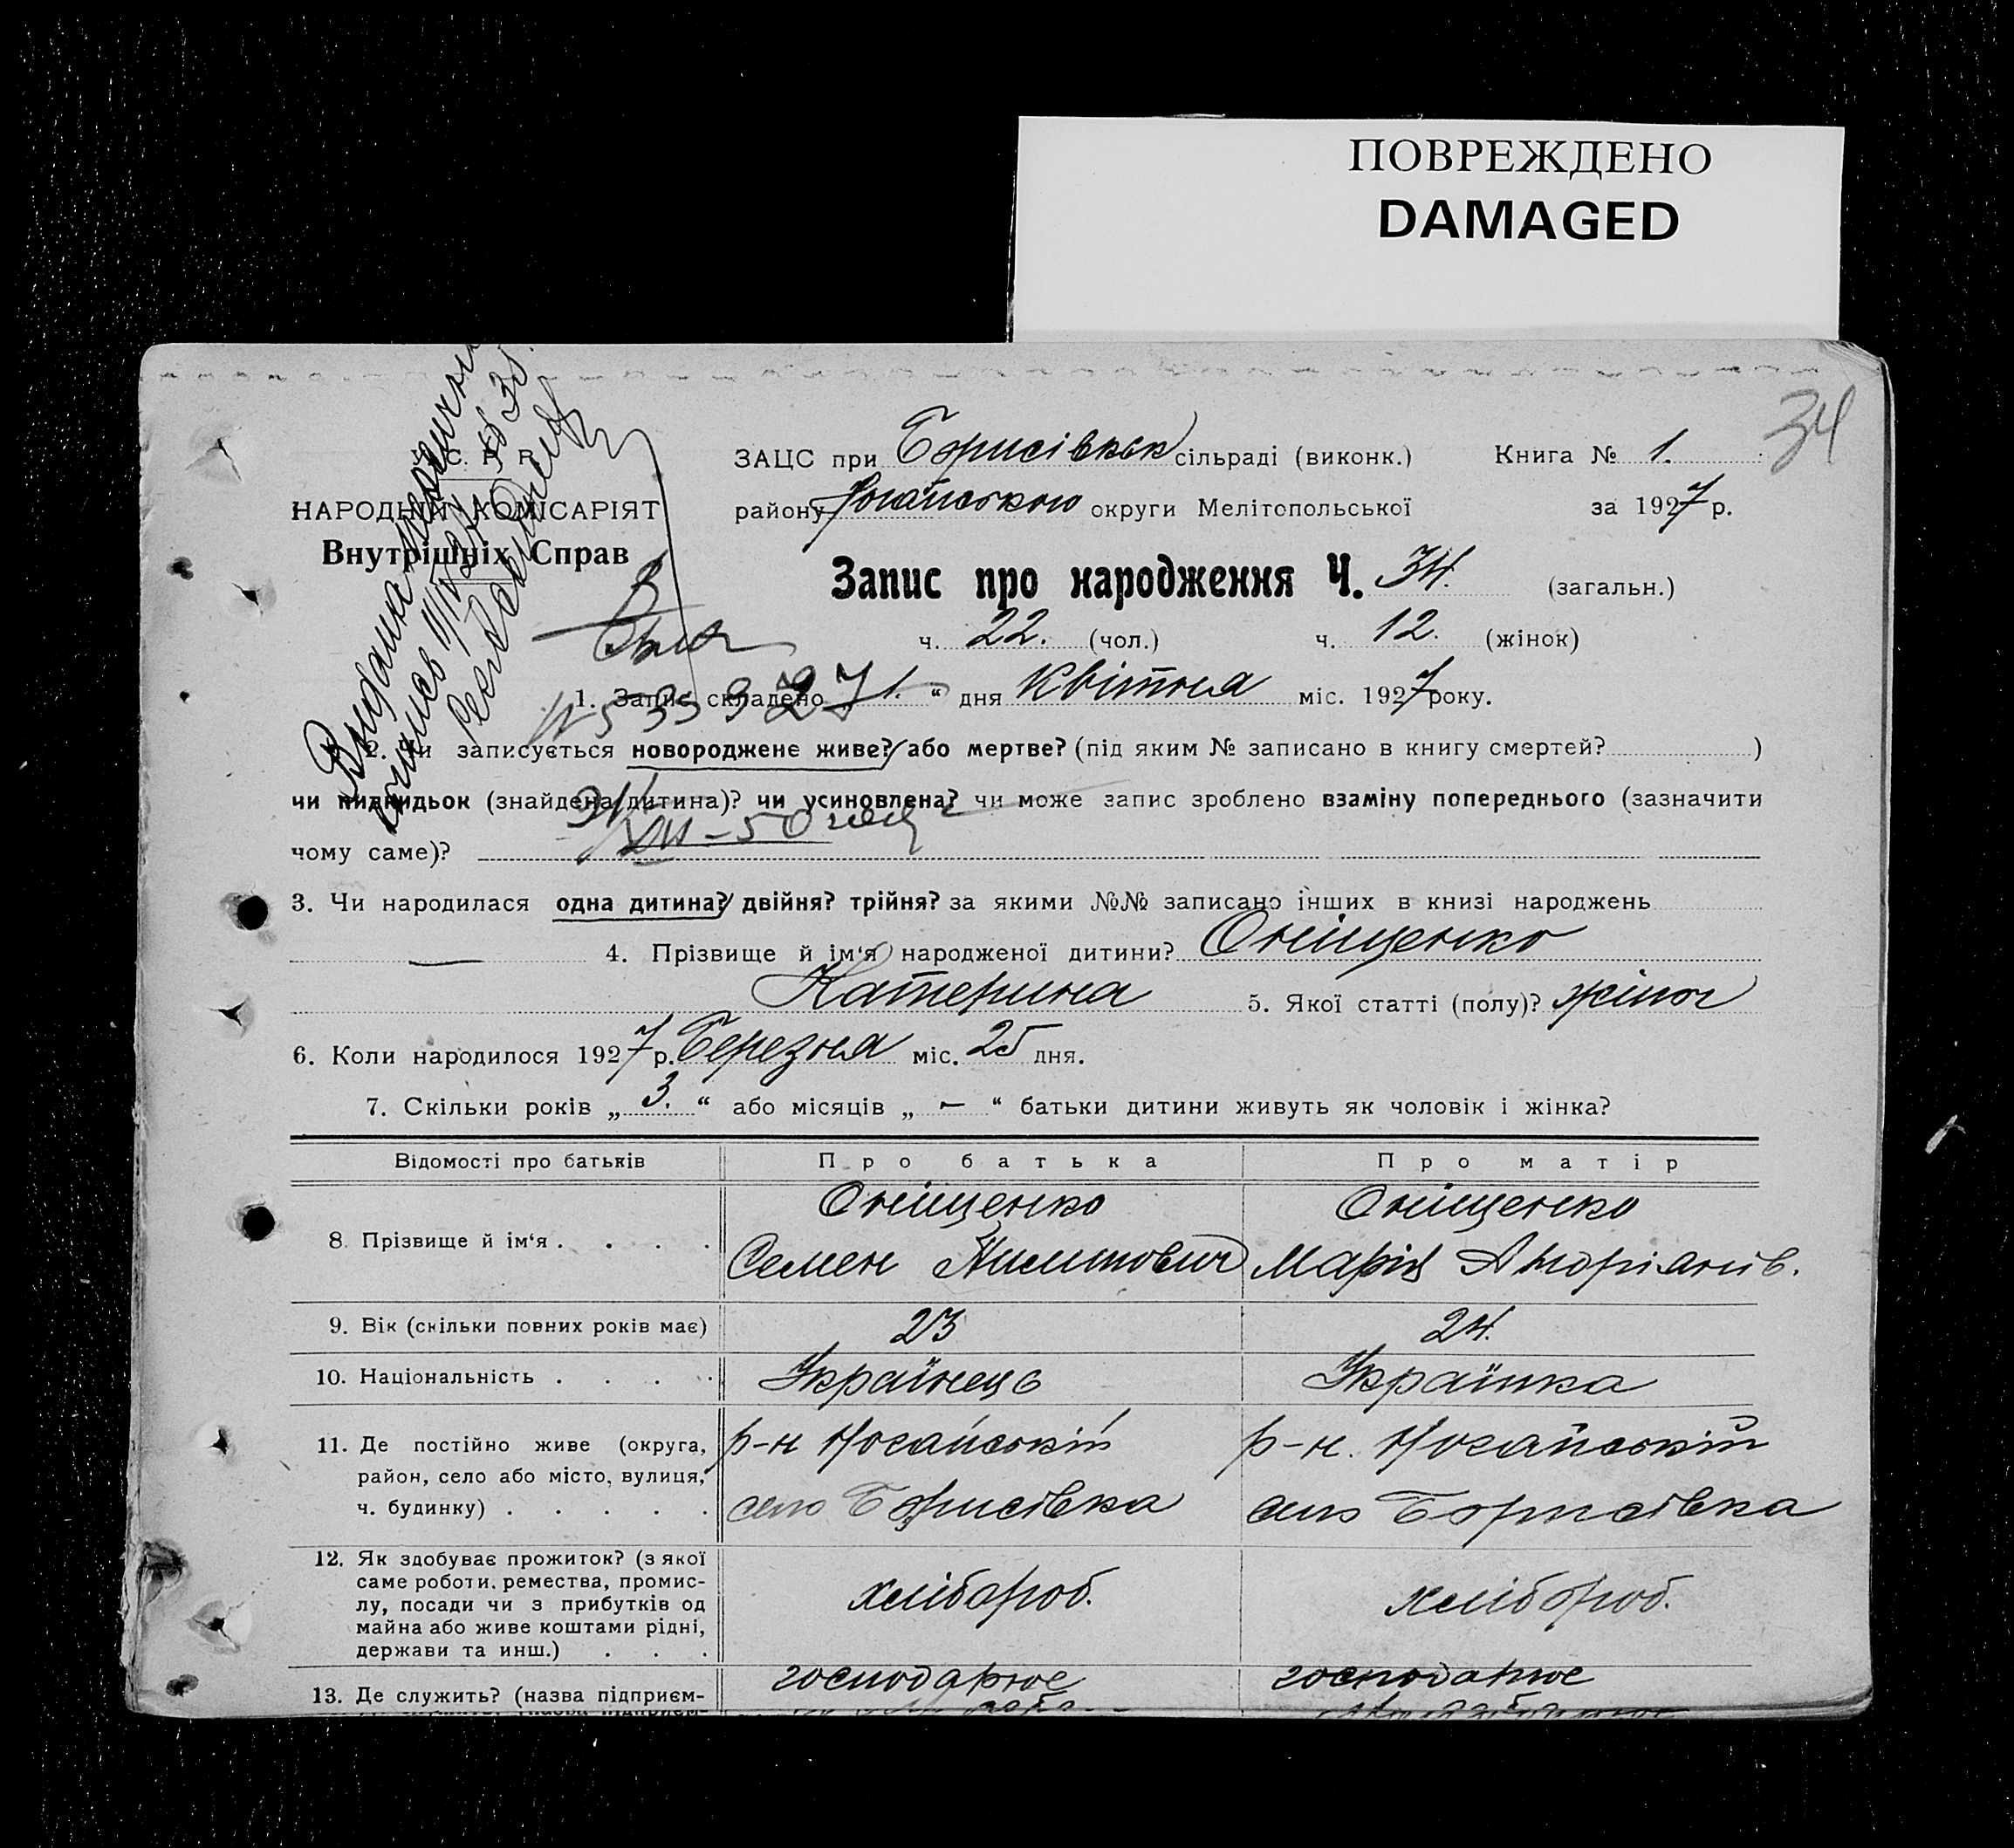 ПОВРЕЖДЕНО
DAMAGED
34
У. С. Р. Р.
НАРОДНІЙ КОМІСАРІЯТ
Внутрішніх Справ
ЗАЦС при Борисівськ сільраді (виконк.) Книга № 1.
району Ногайського округи Мелітопольської за 1927 р.
Запис про народження Ч. 34. (загальн.)
ч. 22. (чол.) ч. 12. (жінок)
1. Запис складено „1.“ дня Квітня міс. 1927 року.
2. Чи записується новороджене живе? або мертве? (під яким № записано в книгу смертей? )
чи підкидьок (знайдена дитина)? чи усиновлена? чи може запис зроблено взаміну попереднього (зазначити
чому саме)?
3. Чи народилася одна дитина? двійня? трійня? за якими №№ записано інших в книзі народжень
— 4. Прізвище й ім‘я народженої дитини? Оніщенко
Катерина 5. Якої статті (полу)? жіноч
6. Коли народилося 1927 р. Березня міс. 25 дня.
7. Скільки років „3.“ або місяців „—“ батьки дитини живуть як чоловік і жінка?
Відомості про батьків Про батька Про матір
8. Прізвище й ім‘я . . . . Оніщенко Оніщенко
Семен Марія
9. Вік (скільки повних років має) 23 24.
10. Національність . . . . Українець Українка
11. Де постійно живе (округа, р-н Ногайській р-н. Ногайській
район, село або місто, вулиця,
ч. будинку) . . . . . село Борисівка село Борисівка
12. Як здобуває прожиток? (з якої
саме роботи, ремества, промис-
лу, посади чи з прибутків од хлібороб. хлібороб.
майна або живе коштами рідні,
держави та инш.) . . .
13. Де служить? (назва підприєм- господарює господарює